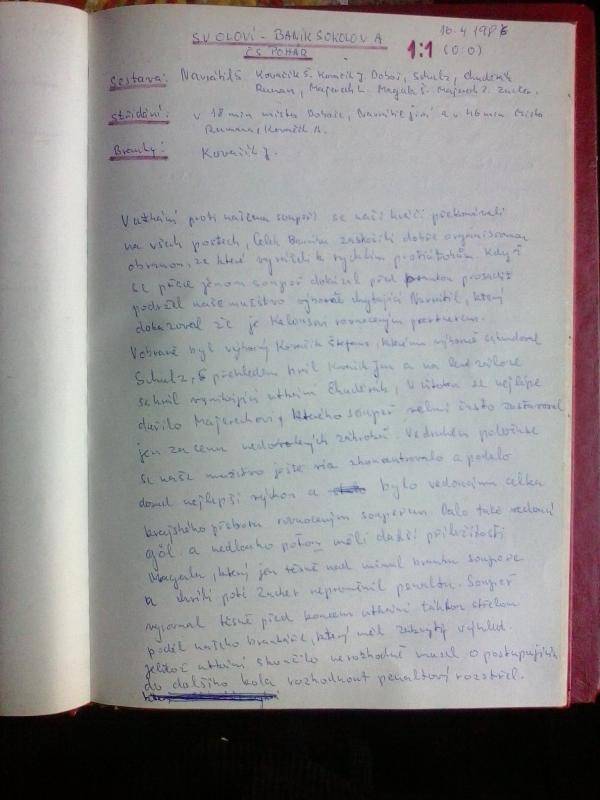 SV OLOVÍ - BANÍK SOKOLOV A 16.4.198
ČS POHÁR 1:1 (0:0)
Sestava: Navrátil S. Kovačik Š. Kovačik J. Dohoič, Schulz, Chuděrik
Ruman, Majerech L. Magula Š. Majerech Z. Zucker.
střídání: v 18 min místo Dohoiče, Navrátil Jiří a v 46 min místo
Rumana, Kovačik M.
Branky: Kovačik J.
V utkání proti našemu soupeři se naši hráči překonávali
na všech postech, Celek Baníku zaskočili dobře organisovanou
obranou, ze které vyráželi k rychlým protiútokům. Když
se přece jenom soupeř dokázal před branku prosadit
podržel naše mužstvo výborně chytající Navrátil, který
dokazoval že je Kalousovi rovnocenným partnerem.
V obraně byl výborný Kovačik Štefan, kterému výborně sekundoval
Schulz, S přehledem hrál Kovačik Jan a na levé záloze
sehrál vynikající utkání Chuděrik, V útoku se nejlépe
dařilo Majerechovi, kterého soupeř velmi často zastavoval
jen za cenu nedovolených zákroků. Ve druhém poločase
se naše mužstvo ještě více zkoncentrovalo a podalo
dosud nejlepší výkon a bylo vedoucímu celku
krajského přeboru rovnocenným soupeřem. Dalo také vedoucí
gól a nedlouho potom měli další příležitosti
Magula, který jen těsně nad minul branku soupeře
a chvíli poté Zucker neproměnil penaltu. Soupeř
vyrovnal těsně před koncem utkání takřka střelou
podél našeho brankáře, který měl zakrytý výhled.
Jelikož utkání skončilo nerozhodně musel o postupujícím
do dalšího kola rozhodnout penaltový rozstřel.